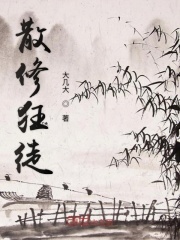 散修狂徒
大几大
◎
著